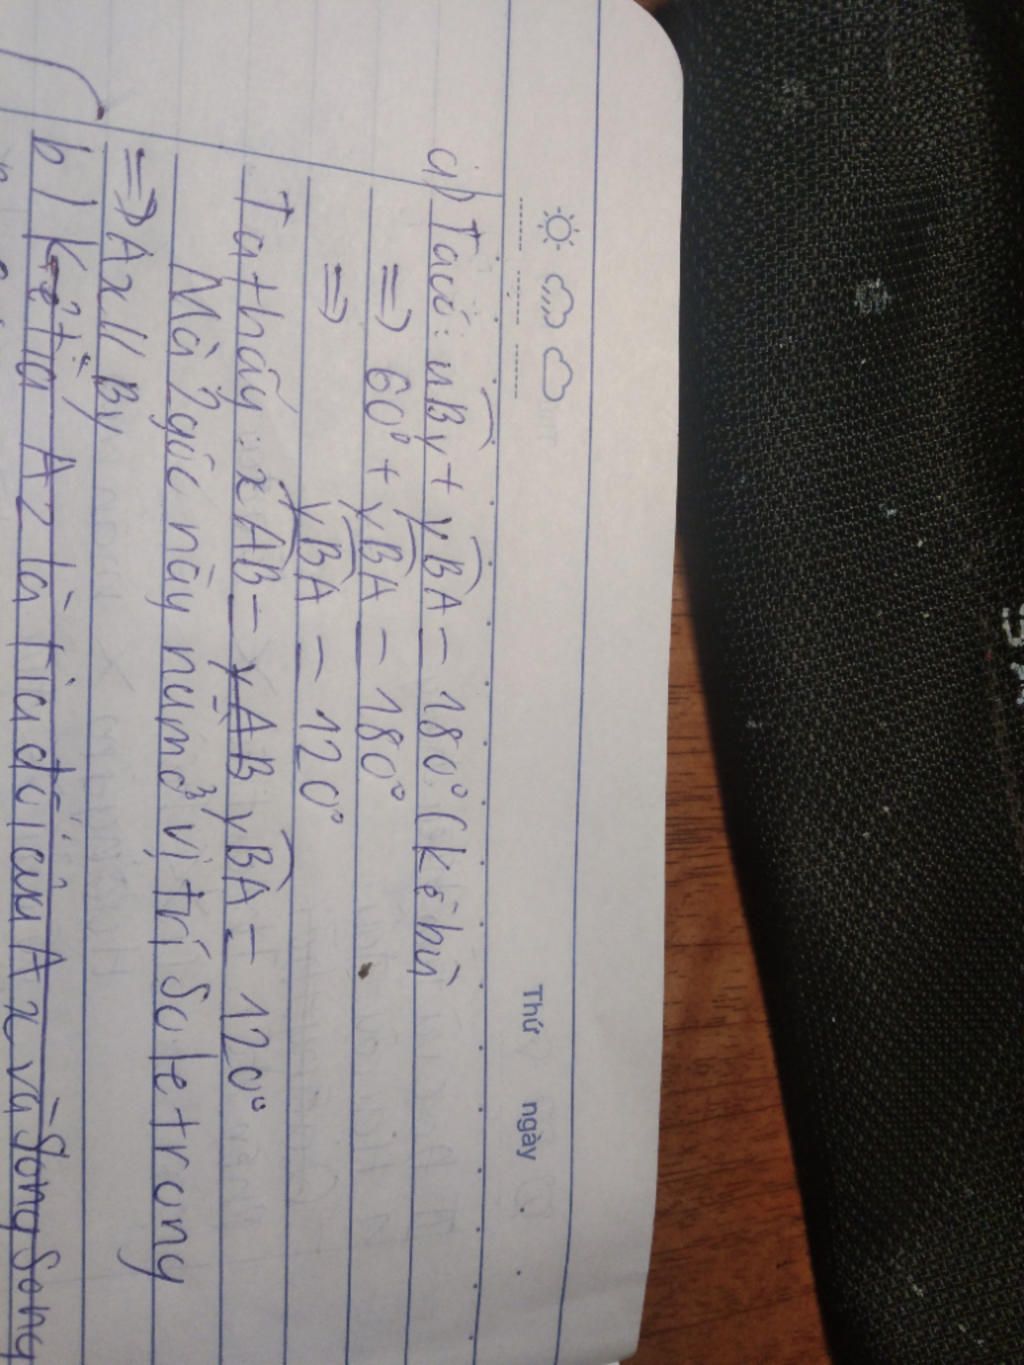 Thứ ngày
a) Ta có: uBy + yBA = 180° (kề bù
=> 60° + yBA = 180°
=> yBA = 120°
Ta thấy: xAB = yBA = 120°
Mà 2 góc này nằm ở vị trí so le trong
=> Ax // By
b) Kẻ tia Az là tia đối của Ax và song song